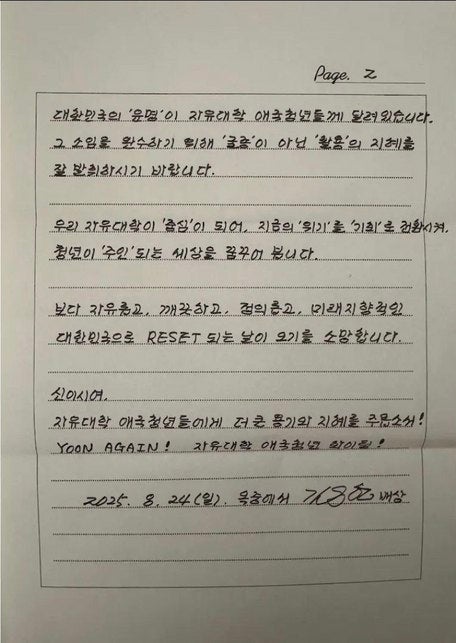 Page. 2
대한민국의 '운명'이 자유대학 애국청년들께 달려있습니다.
그 소임을 완수하기 위해 '굴종'이 아닌 '활용'의 지혜를
잘 발휘하시기 바랍니다.
우리 자유대학이 '중심'이 되어, 지금의 '위기'를 '기회'로 전환시켜,
청년이 '주인' 되는 세상을 꿈꾸어 봅니다.
보다 자유롭고, 깨끗하고, 정의롭고, 미래지향적인
대한민국으로 RESET 되는 날이 오기를 소망합니다.
신이시여.
자유대학 애국청년들에게 더 큰 용기와 지혜를 주옵소서!
YOON AGAIN! 자유대학 애국청년 화이팅!
2025. 8. 24(일). 옥중에서 배상